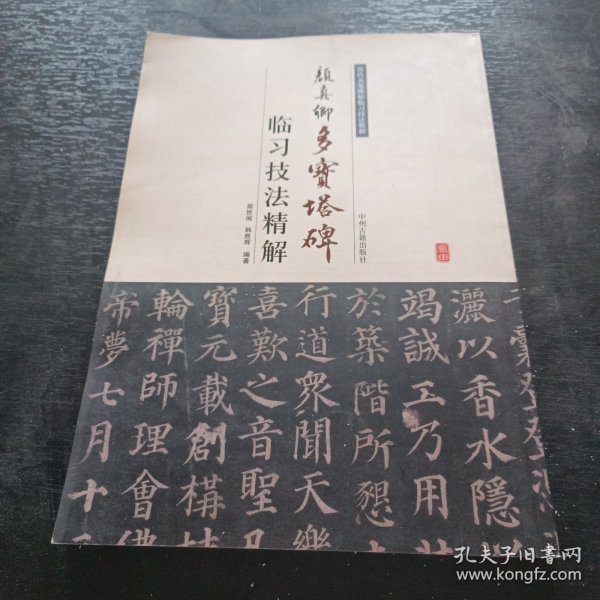 历代名家碑帖临习技法精解
顏真卿多寳塔碑
临习技法精解
周世闻 韩胜辉 编著
中州古籍出版社
灑以香水隱
竭誠工乃用
於築階所懇
行道衆聞天樂
喜歎之音聖凡
寳元載創構
輪禪師理會佛
帝夢七月十
孔夫子旧书网
www.kongfz.com